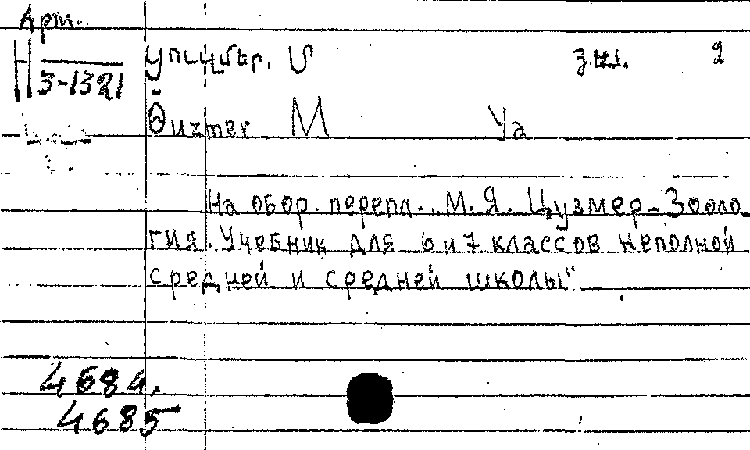 Арм.
Н 3-1321
Ցուզմեր. Մ 2
М Уа
На обор. перепл. „М. Я. Цузмер-Зооло
гия. Учебник для 6 и 7 классов неполной
средней и средней школы“
4684.
4685